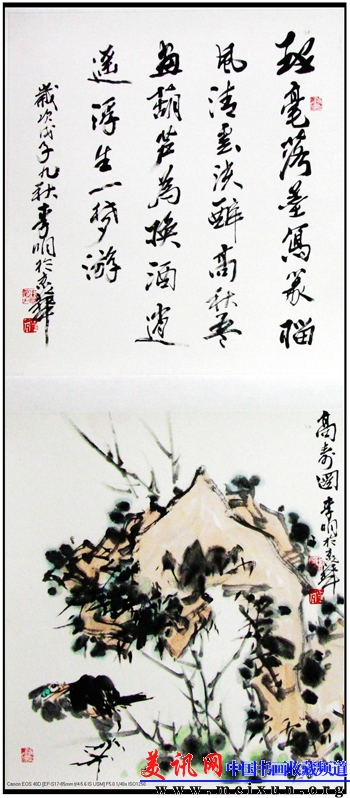 毫落墨寫篆
風清雲淡醉高秋
畫葫芦為換酒逍
遥浮生一梦游
歲次戊子九秋李明於京華
高寿圖 李明於京華
Canon EOS 40D [EF-S17-85mm f/4-5.6 IS USM] F5.0 1/40s
美讯网 中国书画收藏频道